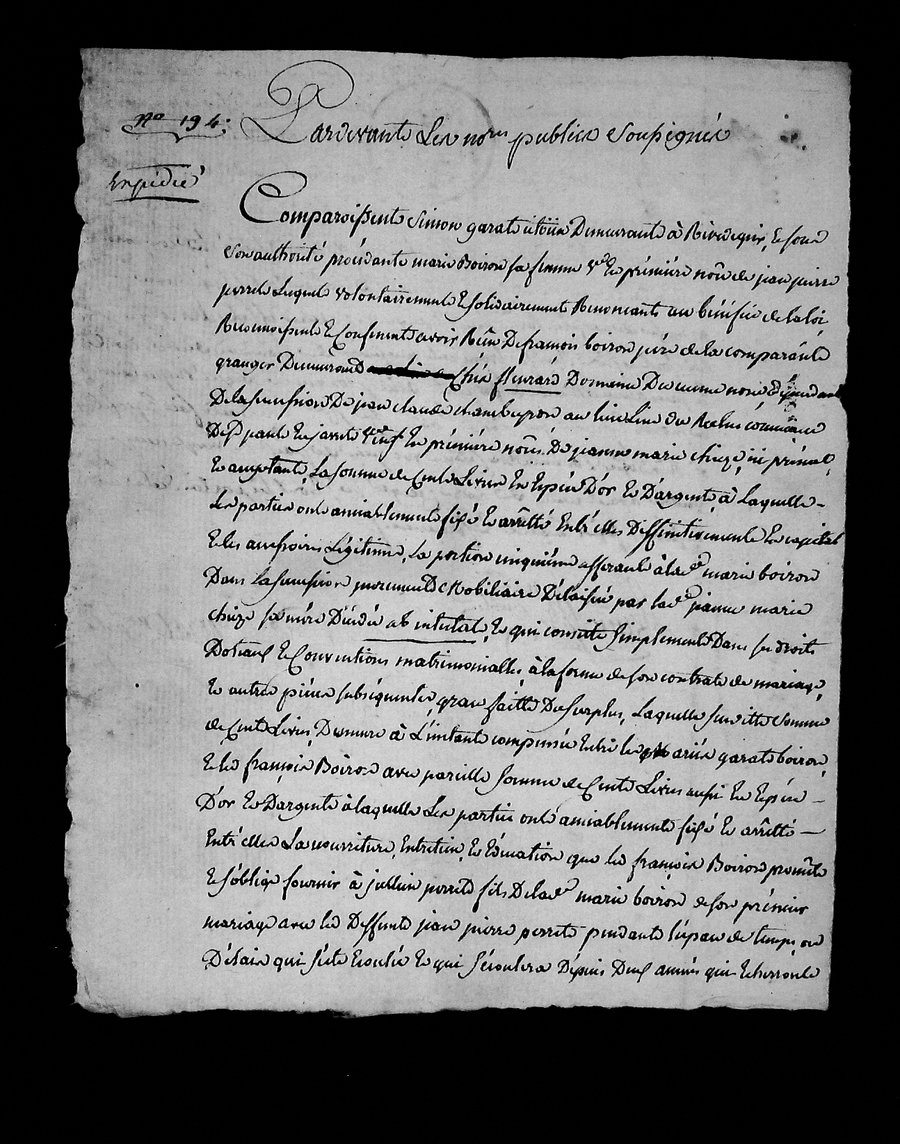 No 194.
Pardevant Les nores publics Soussignés
Expédié
Comparoissent Simon garat Demeurant à Rivedegier, Et sous
Son authorité procédante marie Boiron sa femme ve En première nôces de jean pierre
perret Lequels volontairement Et solidairement Renonçants au bénéfice de la loi
Reconnoissent Et Confessent avoir Reçu De françois boiron père de la comparante
granger Demeurant chés fleurdie Domaine De ce nom Dépendant
De la succession De jean claude chambeyron au lieu
De St paul En jarret veuf En première nôces De jeanne marie chize, ici présent
Et acceptant, La somme de Cent Livres En Espèces D'or Et D'argent, à Laquelle
Les parties ont amiablement fixé Et arrêtté Entr'elles Deffinitivement En capital
Et les accessoires Légitimes, La portion cinquième afférante à lade marie boiron
Dans La succession purement Mobiliaire Délaissée par lade jeanne marie
chize sa mère Décédée ab intestat, Et qui consiste simplement Dans ses droits
Dotaux Et Conventions matrimonialles, à la forme de son contrat de mariage,
Et autres pièces subséquentes, grace faitte Du surplus, Laquelle susditte somme
de Cent Livres, Demeure à L'instant compensée Entre les mariés garat boiron,
Et led françois Boiron avec pareille somme de Cent Livres aussi En Espèces
D'or Et D'argent à laquelle Les parties ont amiablement fixé Et arrêtté
Entr'elles La nourriture, Entretien, Et Education que led françois Boiron promet
Et s'oblige fournir à jullien perret fils De lade marie boiron de son premier
mariage avec led Deffunt jean pierre perret pendant l'espace de temps, ou
Délais qui s'est Ecoulé Et qui s'écoulera Depuis Deux années qui Echerront